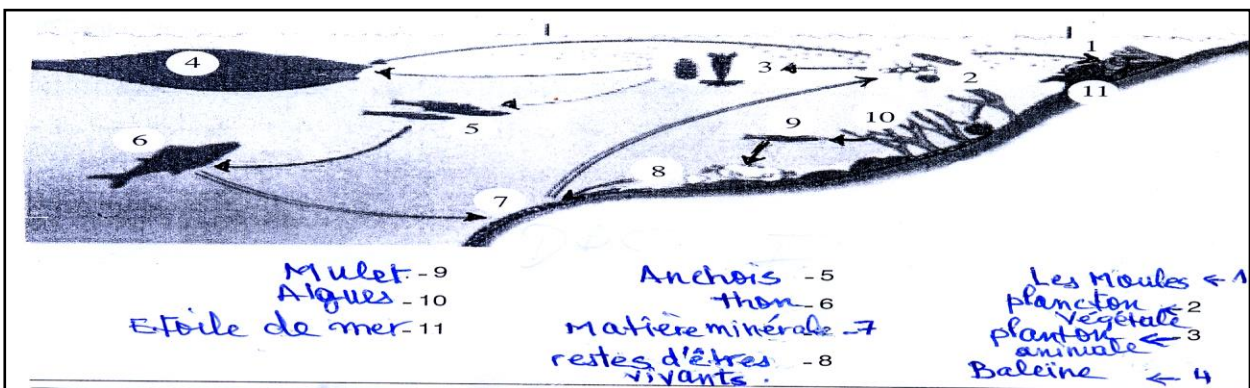 1
2
3
4
5
6
7
8
9
10
11
Mulet - 9
Algues - 10
Etoile de mer - 11
Anchois - 5
thon - 6
Matière minérale - 7
restes d'êtres - 8
vivants.
Les Moules ← 1
plancton ← 2
végétale
plancton ← 3
animale
Baleine ← 4